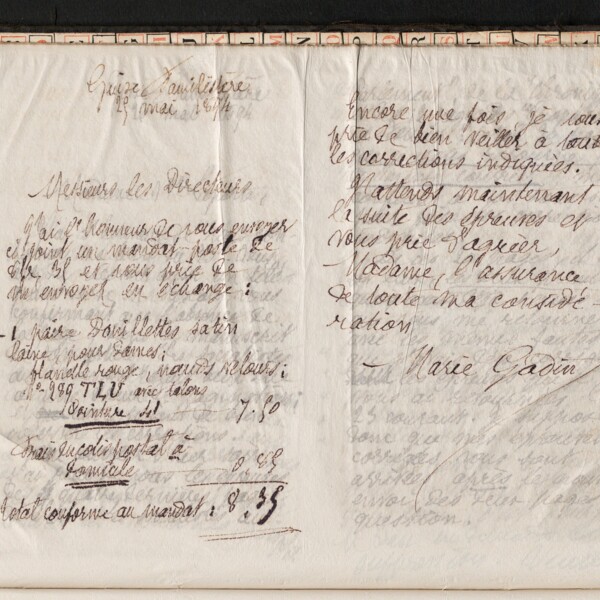 Guise Familistère
25 mai 1894
Messieurs les Directeurs
J'ai l'honneur de vous envoyer
ci joint un mandat-poste de
8fr,35 et vous prie de
m'envoyer en échange :
1 paire douillettes satin
laine, pour dames;
flanelle rouge, nœuds velours;
No 289 TLU avec talons
Pointure 41 7,50
Frais du colis postal à
domicile 0,85
Total conforme au mandat : 8,35
Encore une fois, je vous
prie de bien veiller à toutes
les corrections indiquées.
J'attends maintenant
la suite des épreuves et
vous prie d'agréer,
Madame, l'assurance
de toute ma considé-
ration
Marie Godin